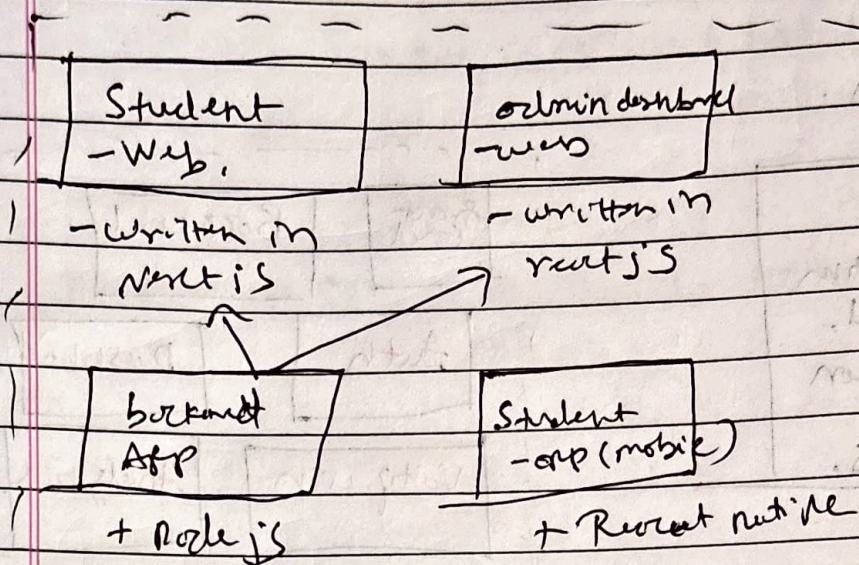 Student
- Web.
- written in
Next js
admin dashboard
- web
- written in
react js
backend
App
+ Node js
Student
- app (mobile)
+ React native